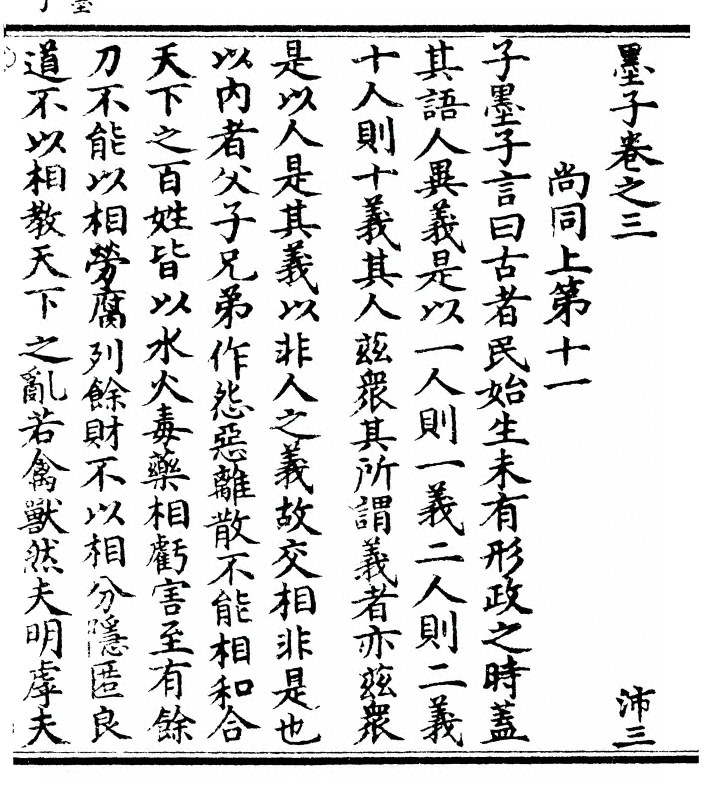 墨子卷之三 沛三
尚同上第十一
子墨子言曰古者民始生未有形政之時蓋
其語人異義是以一人則一義二人則二義
十人則十義其人茲衆其所謂義者亦茲衆
是以人是其義以非人之義故交相非是也
以內者父子兄弟作怨惡離散不能相和合
天下之百姓皆以水火毒藥相虧害至有餘
刀不能以相勞腐列餘財不以相分隱匿良
道不以相教天下之亂若禽獸然夫明虖夫